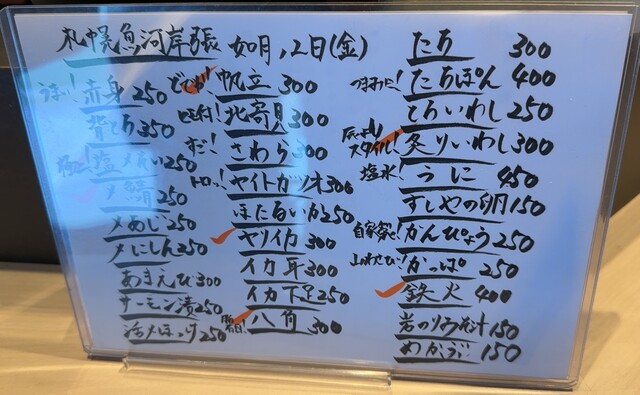 札幌魚河岸張 如月12日(金)
うまい! 赤身 250
背とろ 350
塩〆たい 250
〆鯖 250
〆あじ 250
〆にしん 250
あまえび 300
サーモン漬 250
活〆ほっけ 250
どでか! 帆立 300
北寄貝 300
すご! さわら 300
トロッ! ヤイトガツオ 300
ほたるいか 250
ヤリイカ 300
イカ耳 300
イカ下足 250
八角 300
たち 300
つまみに! たちぽん 400
とろいわし 250
スタイル! 炙りいわし 300
塩水! うに 450
すしやの卵 150
自家製! かんぴょう 250
山わさび! かっぱ 250
鉄火 400
岩のりみそ汁 150
わかさぎ 150